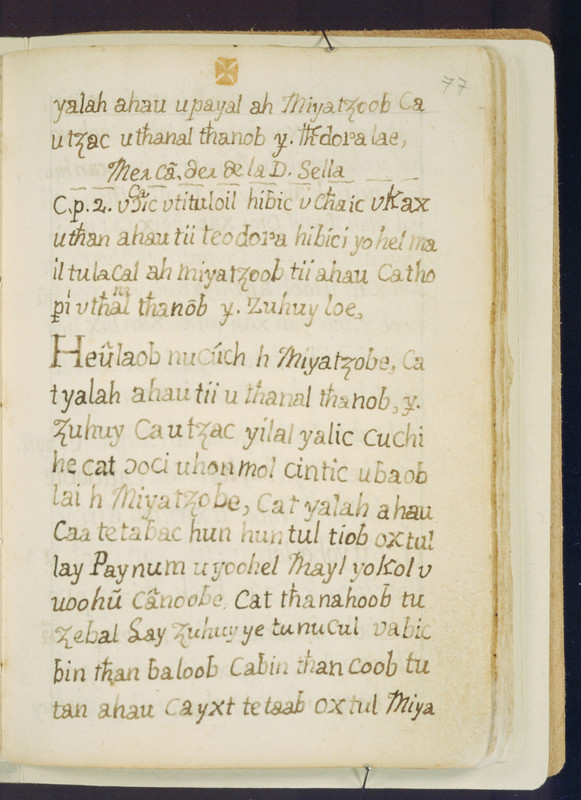 77
yalah ahau upayal ah Miyatz̧oob Ca
utz̧ac uthanal thanob y. th͠doralae,
Mercã. der de la D. Sella
C.p. 2. vɔ̃ic vtituloil hibic v chaic vKax
Ca
uthan ahau tii teodora hibici yohelma
il tulacal ah miyatz̧oob tii ahau Catho
pi vthal thanob y. Zuhuy loe,
na
Heũlaob nucúch h Miyatz̧obe, Ca
tyalah ahau tii u thanal thanob, y.
z̧uhuy Ca utz̧ac yilal yalic cuchi
he cat ɔoci uhonmol cintic ubaob
lai h Miyatz̧obe, Cat yalah ahau
Caa tetabac hun huntul tiob oxtul
lay Paynum uyoohel Mayl yoKol v
uoohũ Cãnoobe. Cat thanahoob tu
z̧ebal Lay z̧uhuy ye tunucul vabic
bin than baloob Cabin than coob tu
tan ahau Cayxt tetaab oxtul Miya